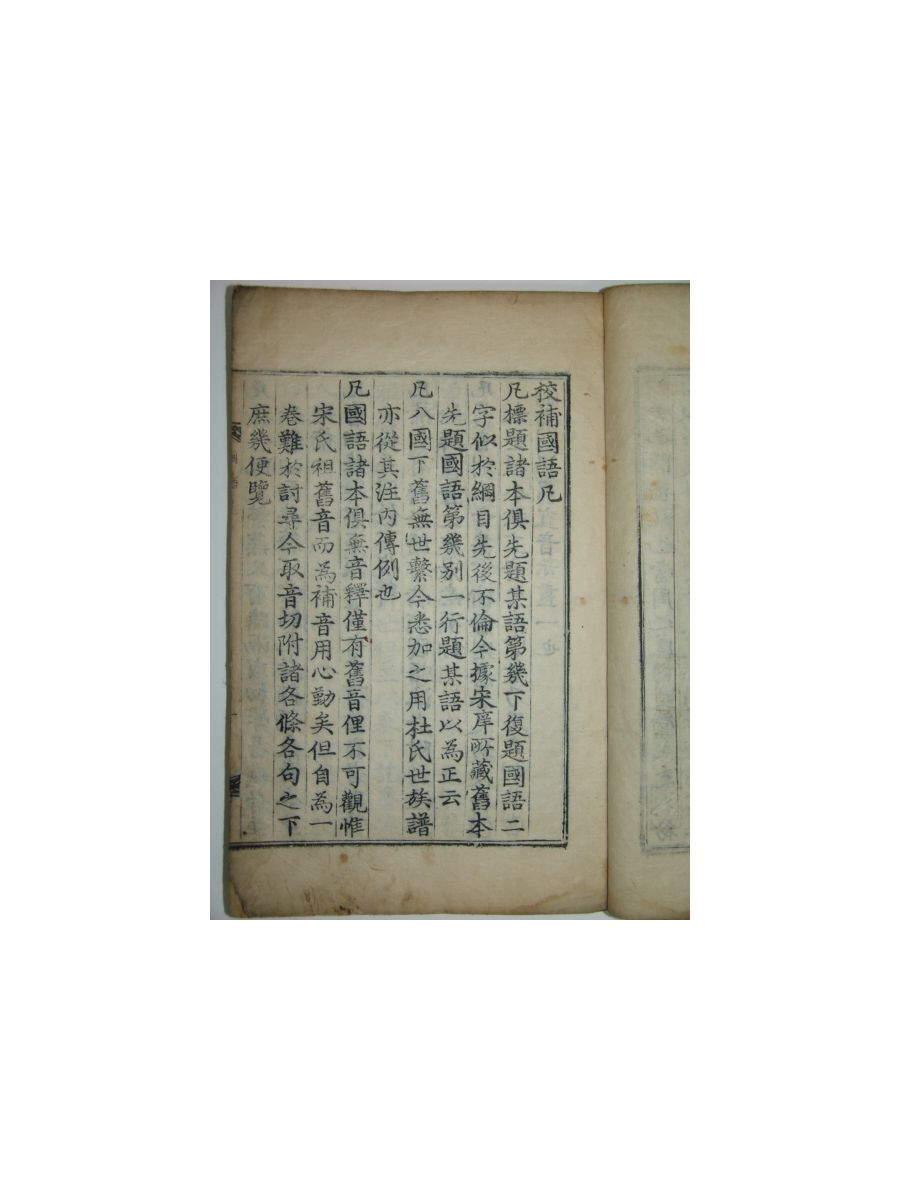 校補國語凡
凡標題諸本俱先題某語第幾下復題國語二
字似於綱目先後不倫今據宋庠所藏舊本
先題國語第幾别一行題某語以為正云
凡八國下舊無世繫今悉加之用杜氏世族譜
亦從其注內傳例也
凡國語諸本俱無音釋僅有舊音俚不可觀惟
宋氏祖舊音而為補音用心勤矣但自為一
卷難於討尋今取音切附諸各條各句之下
庶幾便覽